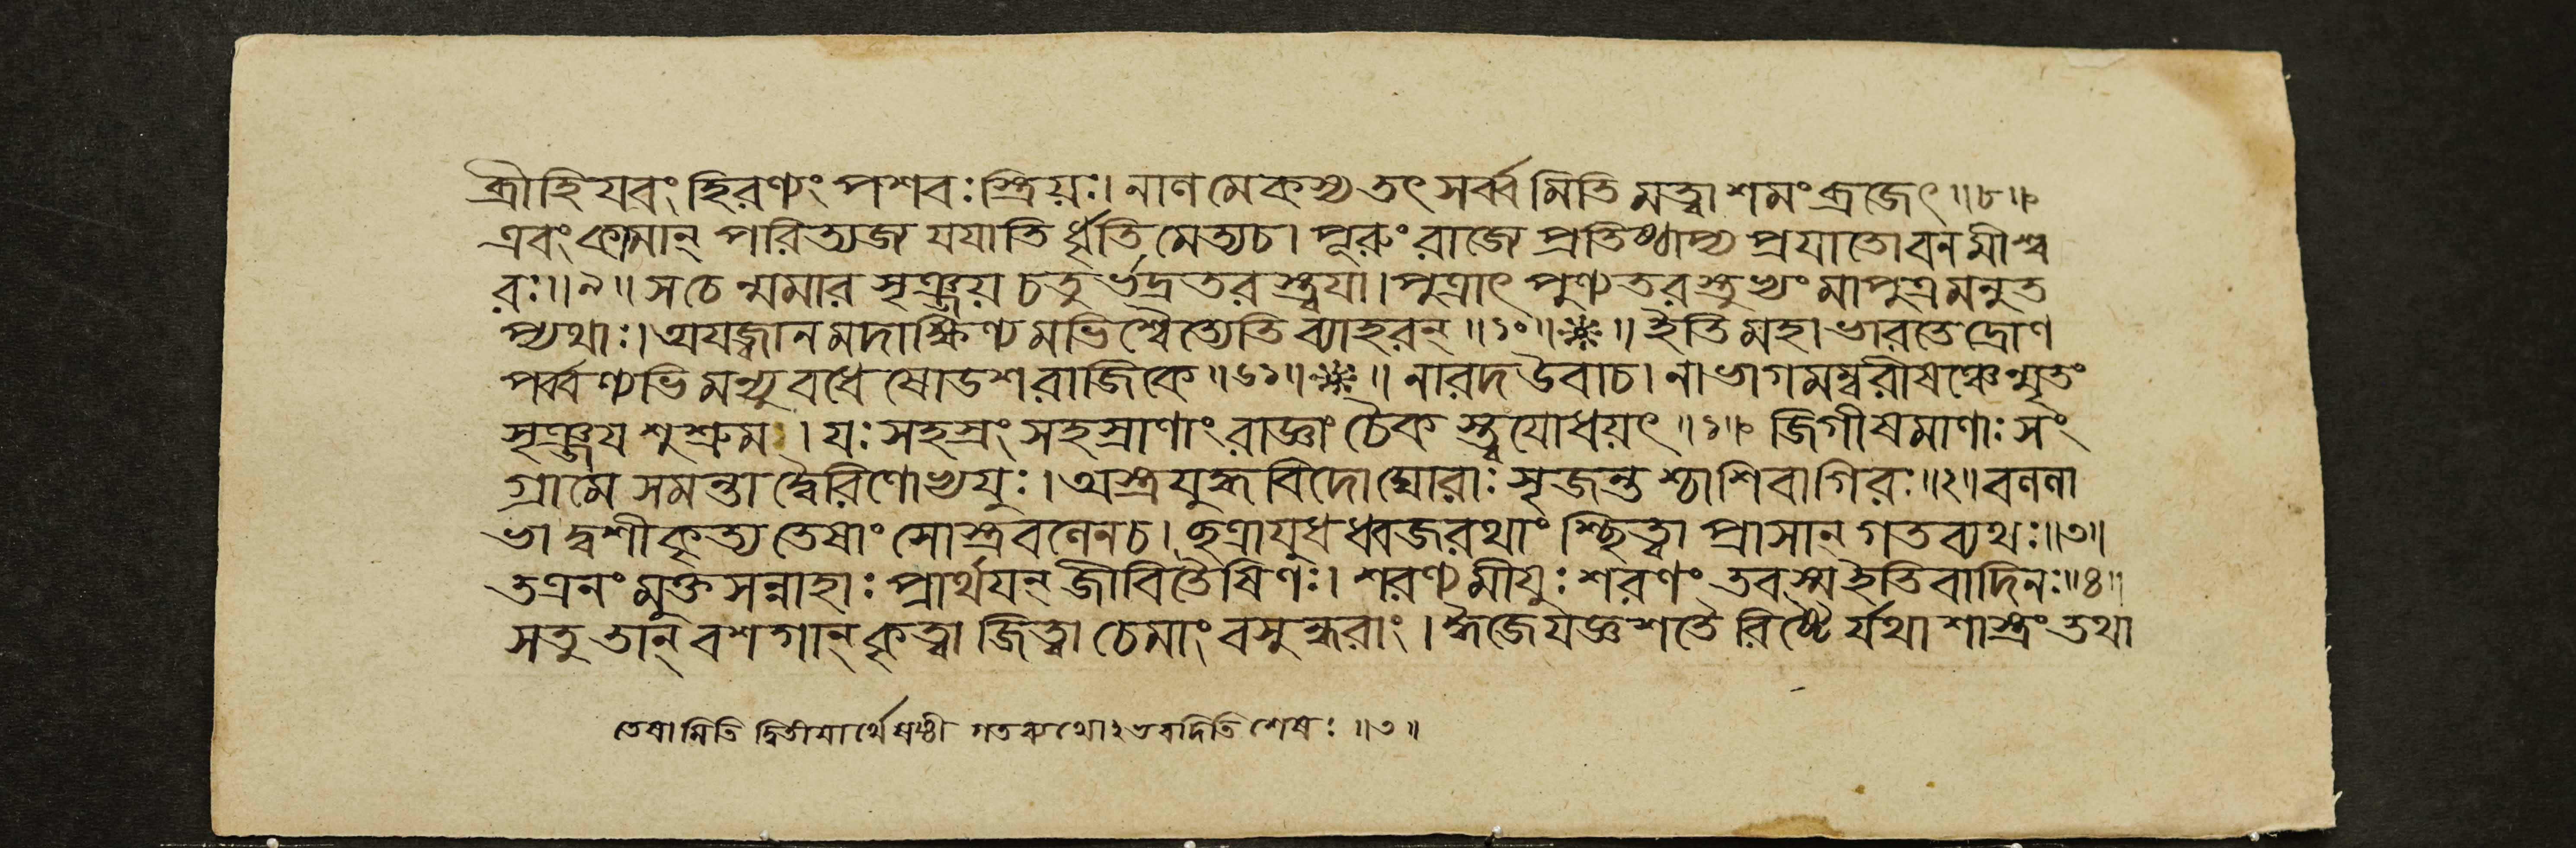 ব্রীহিযবং হিরণ্যং পশবঃ স্ত্রিয়ঃ। নালমেকস্য তৎ সর্ব্বমিতি মত্বা শমং ব্রজেৎ॥৮॥
এবং কামান্ পরিত্যজ্য যযাতির্ধৃতিমেত্য চ। পূরুং রাজ্যে প্রতিষ্ঠাপ্য প্রযাতো বনমীশ্ব
রঃ॥৯॥ স চেন্মমার সৃঞ্জয় চতুর্ভদ্রতরস্ত্বযা। পুত্রাৎ পুণ্যতরস্তুভ্যং মা পুত্রমনুত
প্যথাঃ। অযজ্বানমদাক্ষিণ্যমভি শ্বৈত্যেতি ব্যাহরন্॥১০॥ ॥ ইতি মহাভারতে দ্রোণ
পর্ব্বণ্যভিমন্যুবধে ষোডশরাজিকে॥৬১॥ ॥ নারদ উবাচ। নাভাগমম্বরীষঞ্চেন্মৃতং
সৃঞ্জয শুশ্রুম। যঃ সহস্রং সহস্রাণাং রাজ্ঞাং চৈকস্ত্বযোধয়ৎ॥১॥ জিগীষমাণাঃ সং
গ্রামে সমন্তাদ্বৈরিণোভ্যযুঃ। অস্ত্রযুদ্ধবিদো ঘোরাঃ সৃজন্তশ্চাশিবা গিরঃ॥২॥ বললা
ভাদ্বশীকৃত্য তেষাং সোস্ত্রবলেন চ। ছত্রাযুধধ্বজরথাংশ্ছিত্বা প্রাসান্ গতব্যথঃ॥৩॥
ত এনং মুক্তসন্নাহাঃ প্রার্থযন্ জীবিতৈষিণঃ। শরণ্যমীযুঃ শরণং তব স্ম ইতি বাদিনঃ॥৪॥
স তু তান্ বশগান্ কৃত্বা জিত্বা চেমাং বসুন্ধরাং। ঈজে যজ্ঞশতৈরিষ্টৈর্যথাশাস্ত্রং তথা
তেষামিতি দ্বিতীযার্থে ষষ্ঠী গতব্যথোঽভবদিতি শেষঃ॥৩॥